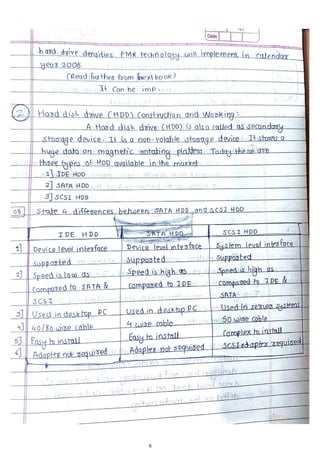 Date
hard drive densities. PMR technology will implement in calendar
year 2006
(Read further from textbook)
It can be imp
2 Hard disk drive (HDD) Construction and Working:
A Hard disk drive (HDD) is also called as secondary
storage device. It is a non-volatile storage device. It stores a
huge data on magnetic rotating platters. Today there are
three types of HDD available in the market
1] IDE HDD
2] SATA HDD
3] SCSI HDD
State 4 differences between SATA HDD and SCSI HDD
IDE HDD SATA HDD SCSI HDD
1] Device level interface Device level interface System level interface
supported Supported Supported
2] Speed is low as Speed is high as Speed is high as
compared to SATA & compared to IDE compared to IDE &
SCSI SATA
3] Used in desktop PC Used in desktop PC Used in servers systems
4] 40/80 wire cable 4 wire cable 50 wire cable
5] Easy to install Easy to install Complex to install
6] Adapter not required Adapter not required SCSI adapter required
8